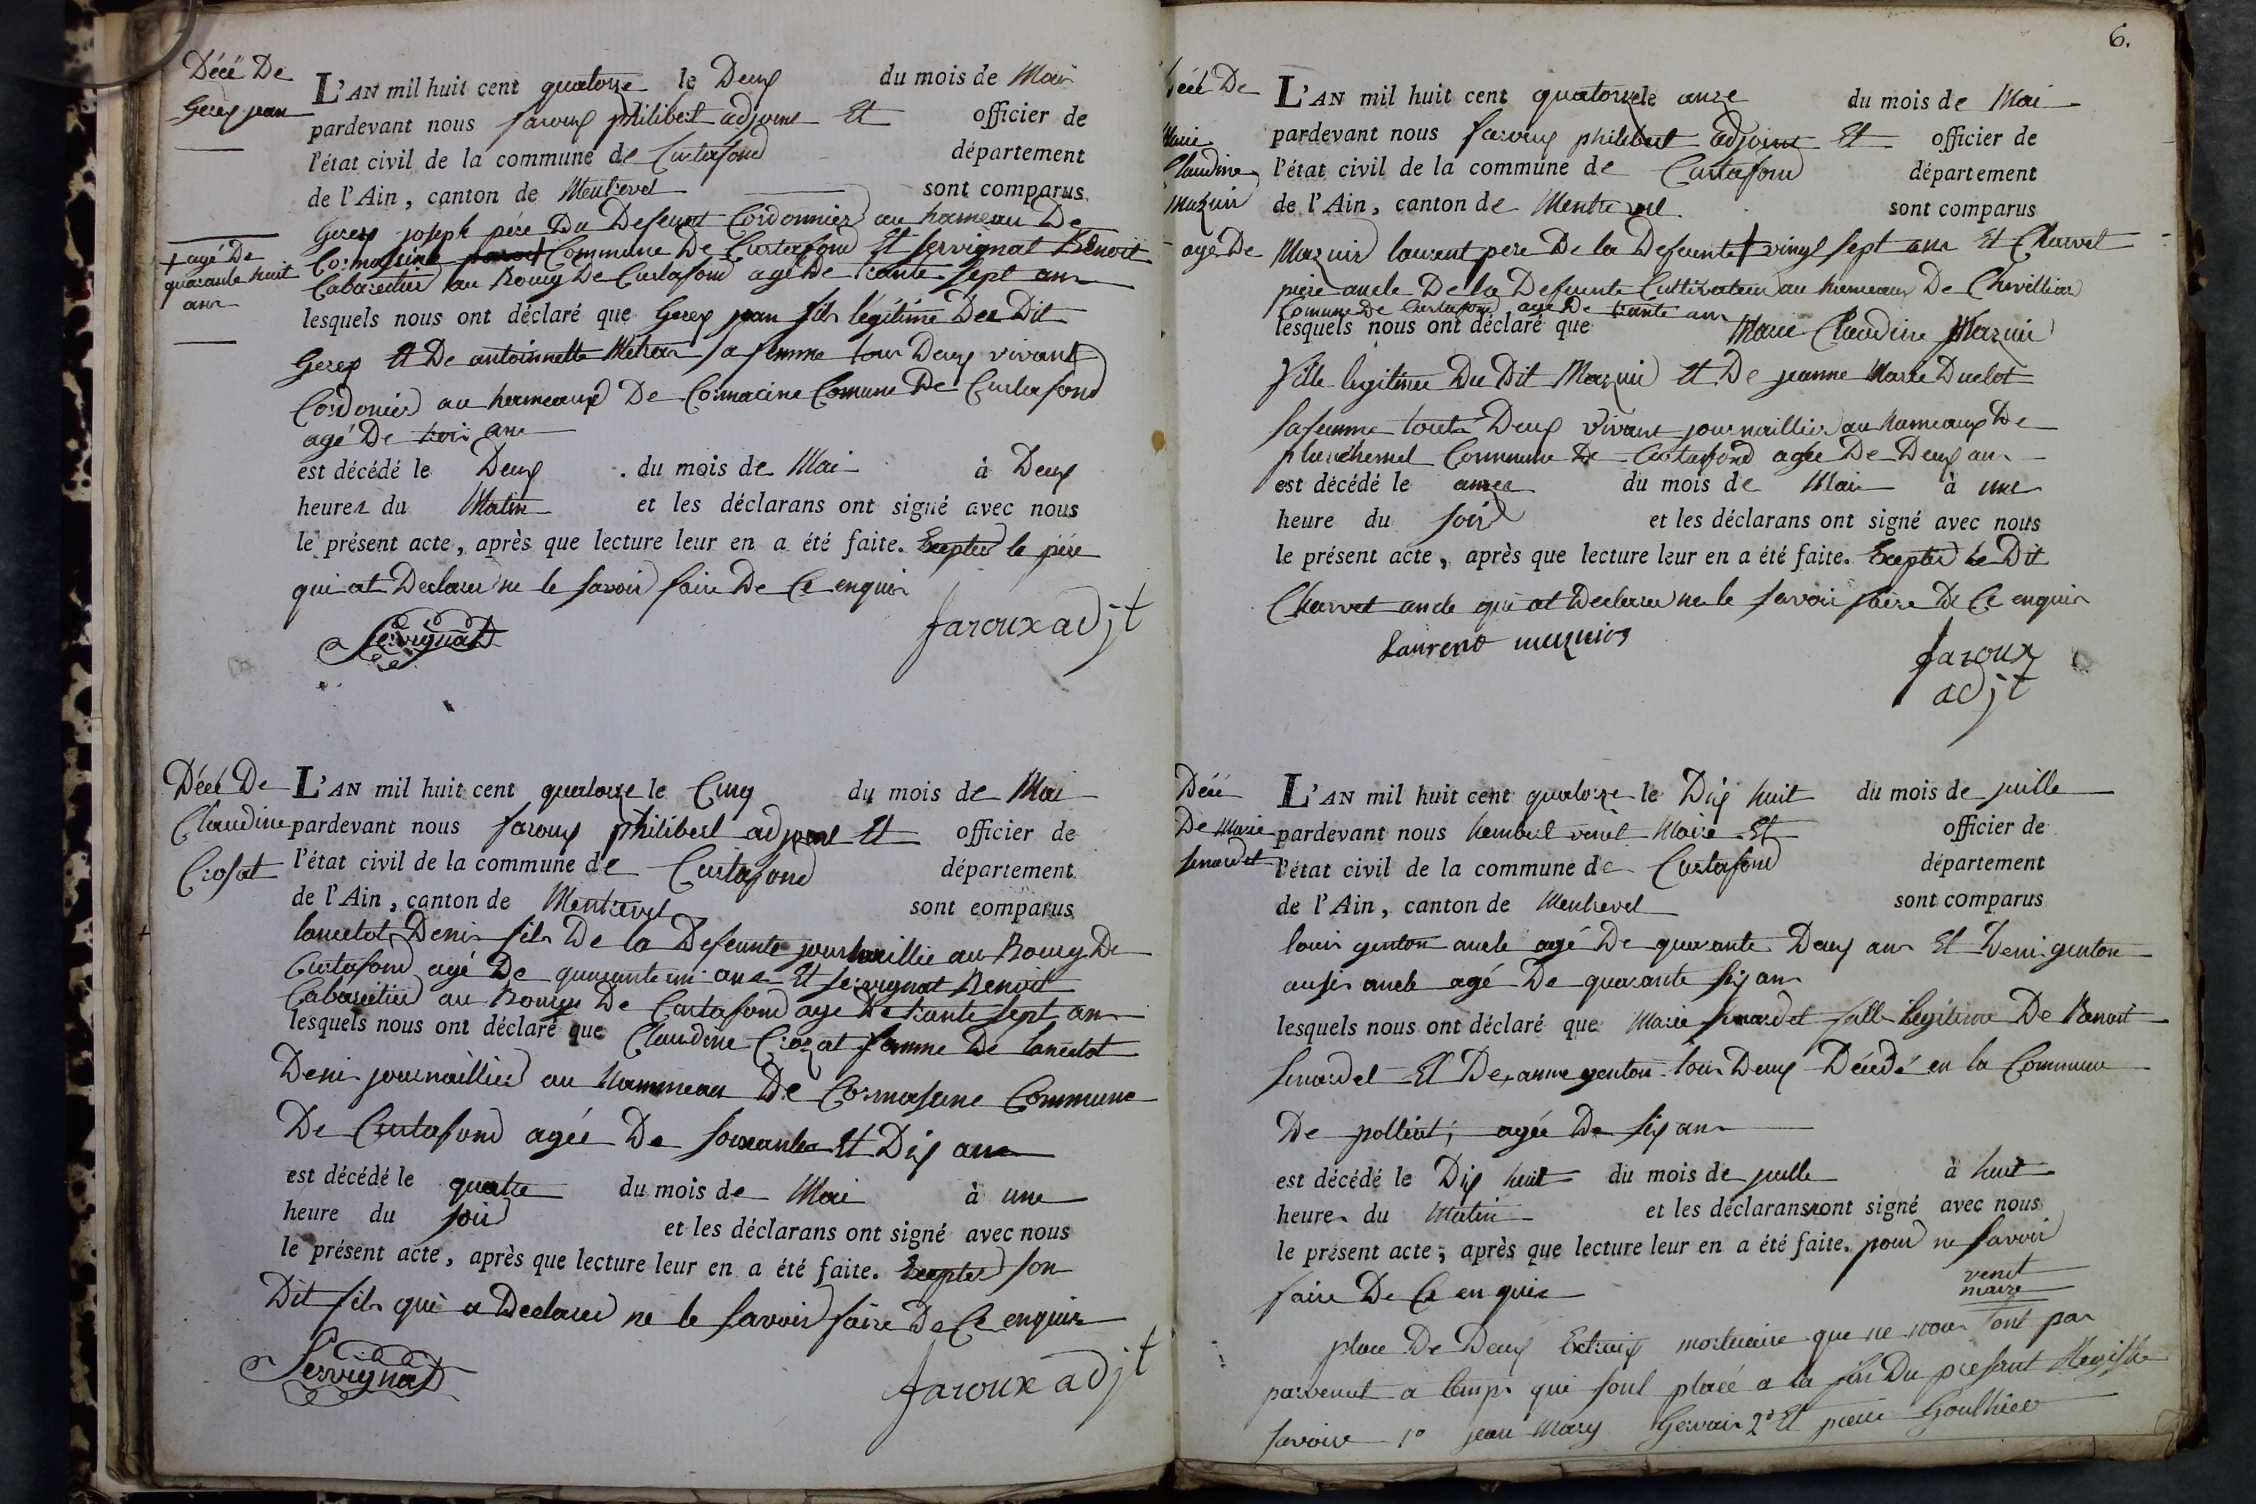 Décé De
Gerex jean
L'AN mil huit cent quatorze le Deux du mois de Mai
pardevant nous faroux philibert adjoint Et officier de
l'état civil de la commune de Curtafond département
de l'Ain, canton de Montrevel sont comparus
Gerex joseph père Du Defeunt Cordonnier au hameau De
+ agé De
quarante huit
ans
Cormasine Commune De Curtafond Et Servignat Benoit
Cabaretier au Bourg De Curtafond agé De trante sept ans
lesquels nous ont déclaré que Gerex jean fils légitime Des Dit
Gerex Et De antoinnette sa femme tous Deux vivant
Cordonier au hameaux De Cormacine Comune De Curtafond
agé De trois ans
est décédé le Deux du mois de Mai à Deux
heures du Matin et les déclarans ont signé avec nous
le présent acte, après que lecture leur en a été faite. Excepter le père
qui at Declarer ne le savoir faire De Ce enquis
Servignat
faroux adjt
Décé De
Claudine
Crosat
L'AN mil huit cent quatorze le Cinq du mois de Mai
pardevant nous faroux philibert adjoint Et officier de
l'état civil de la commune de Curtafond département
de l'Ain, canton de Montrevel sont comparus
lancelot Denis fils De la Defeunte journaillié au Bourg De
Curtafond agé De quarante ans Et Servignat Benoit
Cabaretier au Bourg De Curtafond agé De trante sept ans
lesquels nous ont déclaré que Claudine Crozat femme De lancelot
Denis journaillier au hammeau De Cormasine Commune
De Curtafond agée De soixante Et Dix ans
est décédé le quatre du mois de Mai à une
heure du soir et les déclarans ont signé avec nous
le présent acte, après que lecture leur en a été faite. Excepter son
Dit fils qui a Declarer ne le savoir faire De Ce enquis
Servignat
faroux adjt
6.
Décé De
Marie
Claudine
Mazuir
agé De
L'AN mil huit cent quatorze le onze du mois de Mai
pardevant nous faroux philibert adjoint Et officier de
l'état civil de la commune de Curtafond département
de l'Ain, canton de Montrevel sont comparus
Mazuir laurent pere De la Defeunte + vingt sept ans Et Charvet
piere oncle De la Defeunte Cultivateur au hameaux De
Comune De Curtafond agé De trante ans
lesquels nous ont déclaré que Marie Claudine Mazuir
fille legitime Du Dit Mazuir Et De jeanne Marie Duclot
sa femme touts Deux vivant journaillier au hameaux De
Commune De Curtafond agée De Deux ans
est décédé le onzee du mois de Mai à une
heure du soir et les déclarans ont signé avec nous
le présent acte, après que lecture leur en a été faite. Excepter le Dit
Charvet oncle qui at Declarer ne le savoir faire De Ce enquis
Laurent mazuir
faroux
adjt
Décé
De Marie
L'AN mil huit cent quatorze le Dix huit du mois de juille
pardevant nous Maire Et officier de
l'état civil de la commune de Curtafond département
de l'Ain, canton de Montrevel sont comparus
louis genton oncle agé De quarante Deux ans Et Deni genton
ausis oncle agé De quarante six ans
lesquels nous ont déclaré que Marie légitime De Benoit
Et De anne genton tous Deux Décédé en la Commune
De polliat; agée De six ans
est décédé le Dix huit du mois de juille à huit
heures du Matin et les déclarans ont signé avec nous
le présent acte, après que lecture leur en a été faite. pour ne savoir
faire De Ce enquis
maire
place De Deux Extraix mortuaire que ne nous sont pas
parvenut a temps qui sont placé a la fin Du present Registre
savoire 1o jean Mary Gervais 2o Et pierre